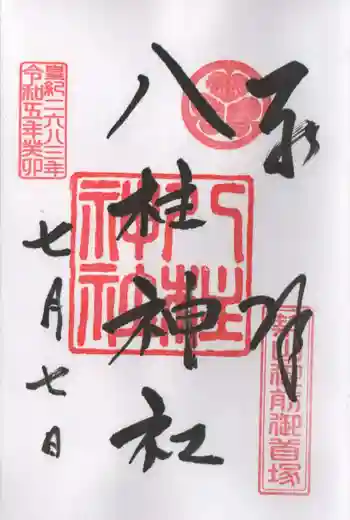 奉拝
築山御前御首塚
八柱神社
八柱
神社
七月七日
皇紀二六八三年
令和五年癸卯